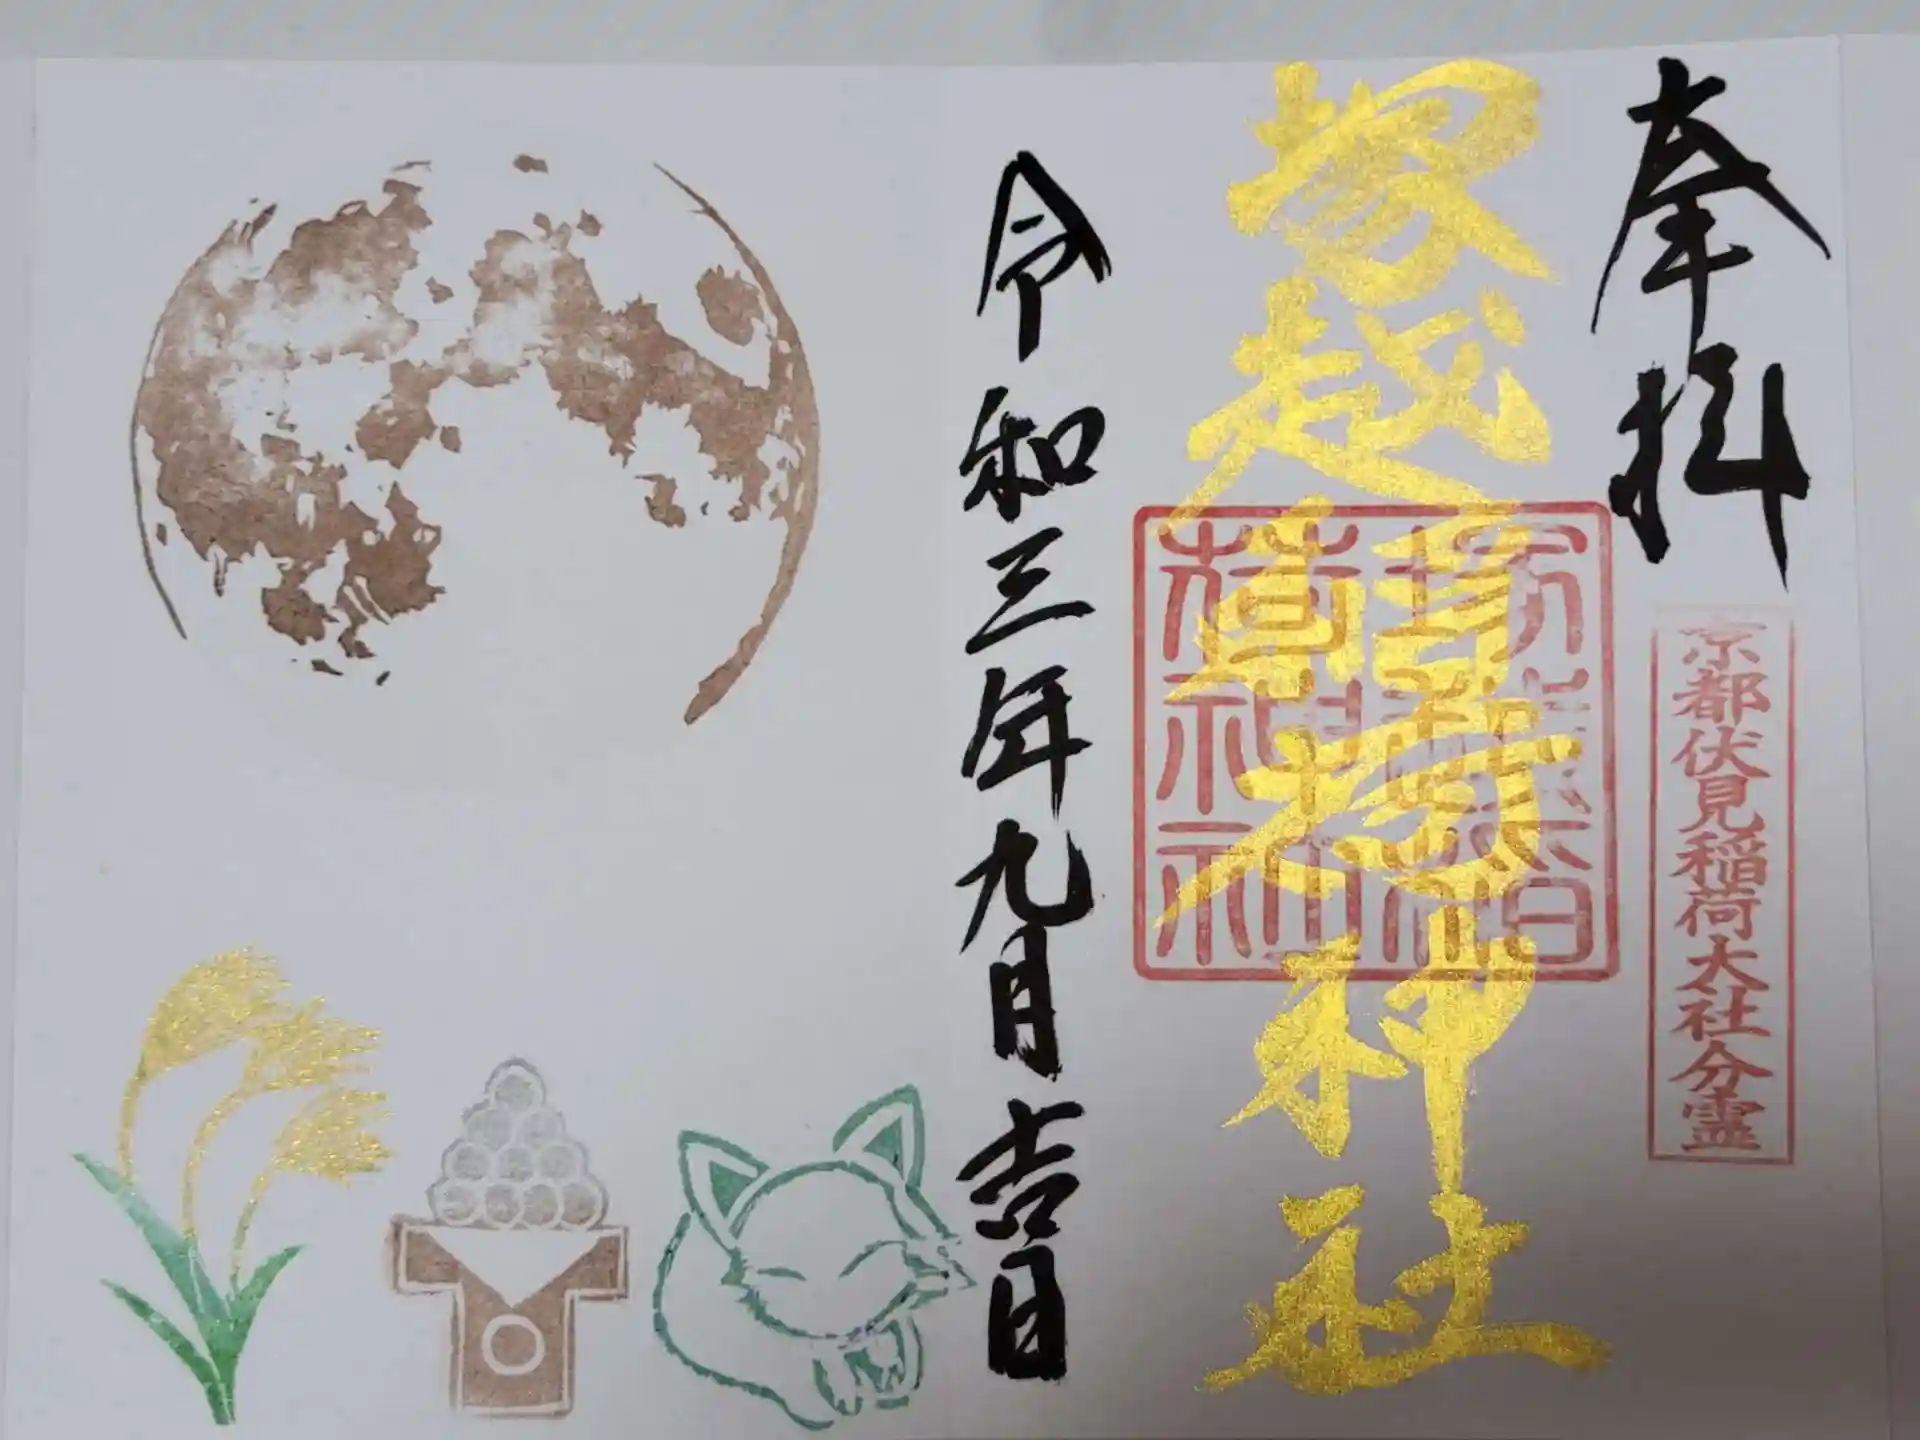 奉拝
京都伏見稲荷大社分霊
塚越稲荷神社
塚越稲荷神社
令和三年九月吉日